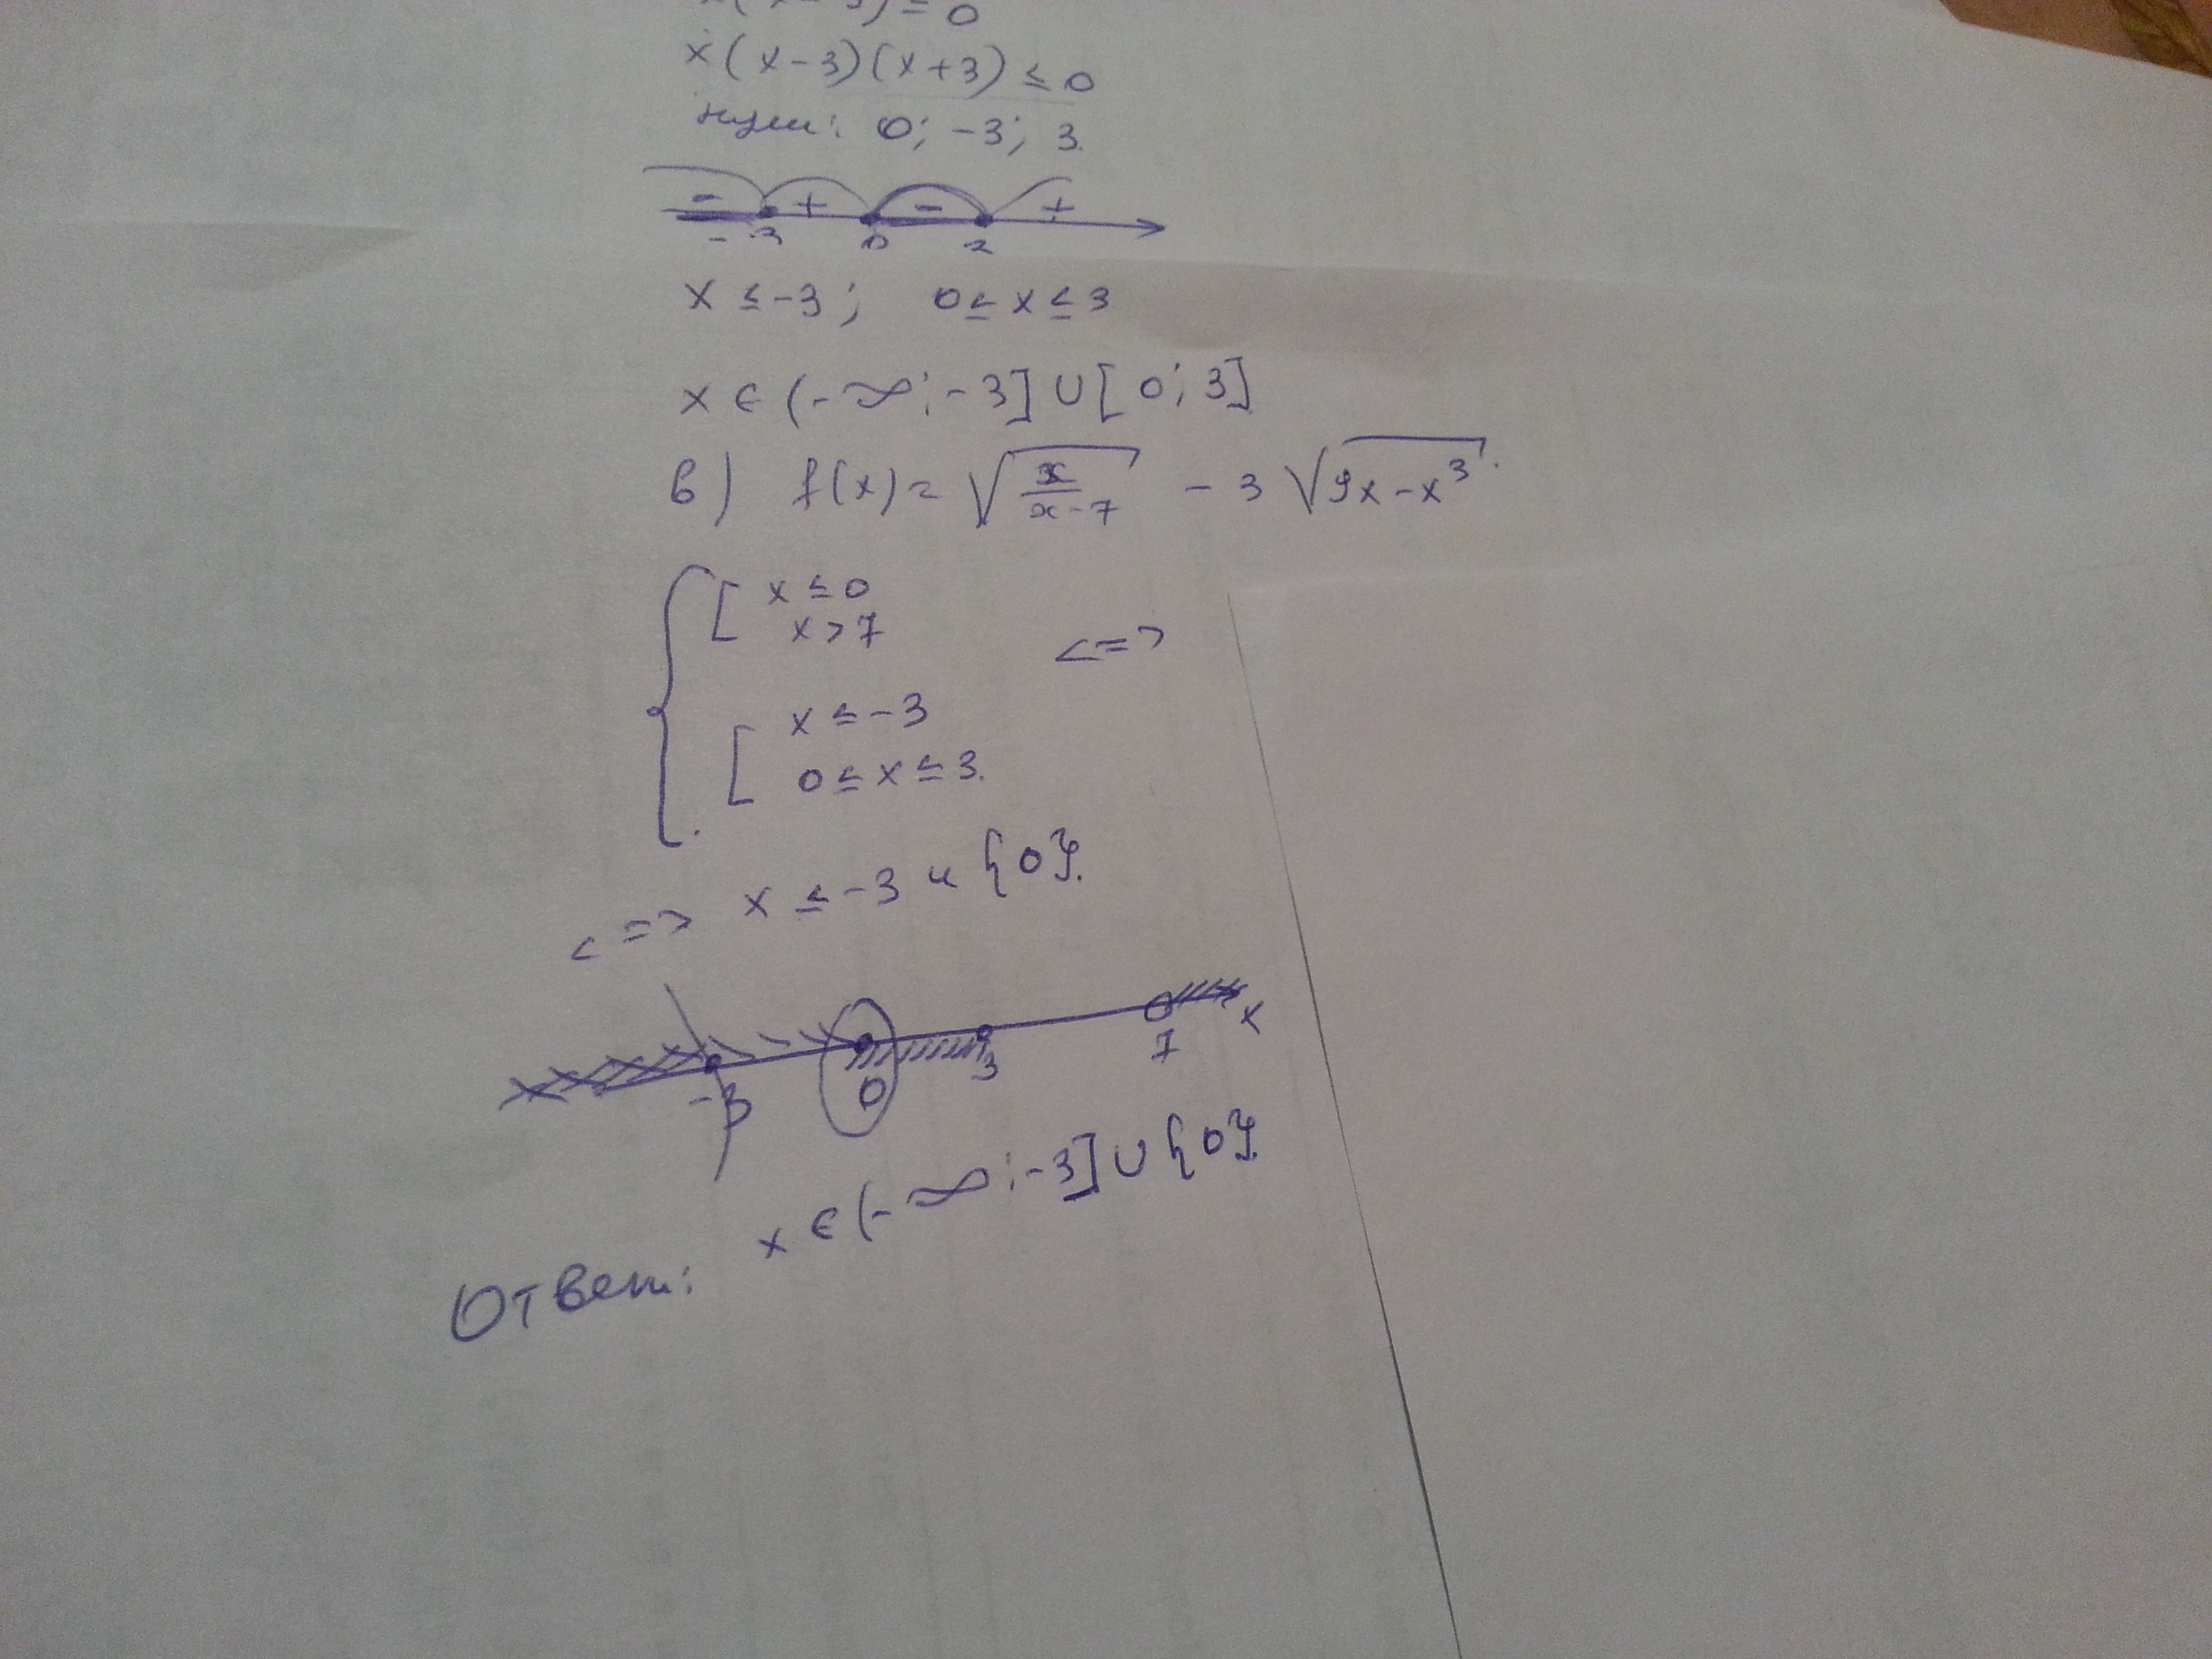 x(x-3)(x+3) ≤ 0
нули: 0; -3; 3.
- + - +
-3 0 3
x ≤ -3; 0 ≤ x ≤ 3
x ∈ (-∞; -3] ∪ [0; 3]
в) f(x) = √(x/(x-7)) - 3 √(9x-x³).
{ [ x ≤ 0
x > 7 <=>
[ x ≤ -3
0 ≤ x ≤ 3.
<=> x ≤ -3 и {0}.
-3 0 3 7 x
Ответ: x ∈ (-∞; -3] ∪ {0}.